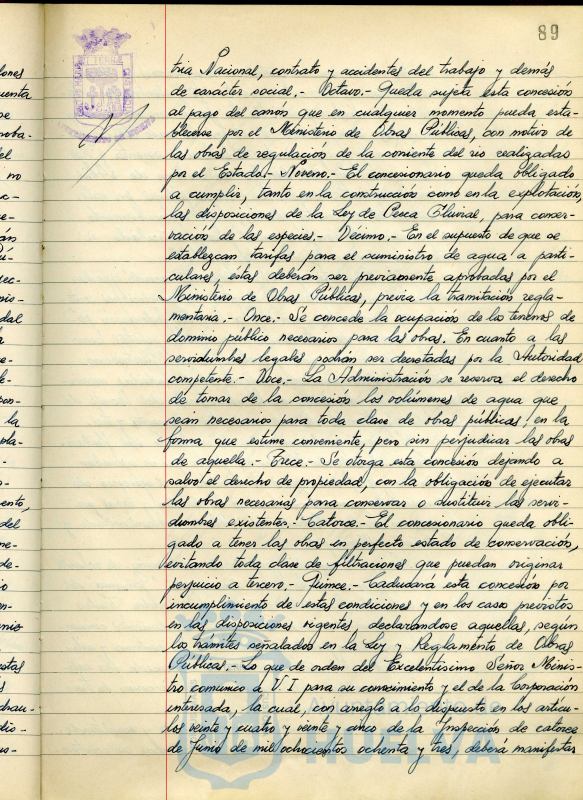 89
tria Nacional, contrato y accidentes del trabajo y demás
de carácter social.- Octavo.- Queda sujeta esta concesión
al pago del canón que en cualquier momento pueda esta-
blecerse por el Ministerio de Obras Públicas, con motivo de
las obras de regulación de la corriente del rio realizadas
por el Estado.- Noveno.- El concesionario queda obligado
a cumplir, tanto en la construcción como en la explotación,
las disposiciones de la Ley de Pesca Fluvial, para conser-
vación de las especies.- Décimo.- En el supuesto de que se
establezcan tarifas para el suministro de agua a parti-
culares, éstas deberán ser previamente aprobadas por el
Ministerio de Obras Públicas, previa la tramitación regla-
mentaria.- Once.- Se concede la ocupación de los terrenos de
dominio público necesarios para las obras. En cuanto a las
servidumbres legales podrán ser decretadas por la Autoridad
competente.- Doce.- La Administración se reserva el derecho
de tomar de la concesión los volúmenes de agua que
sean necesarios para toda clase de obras públicas, en la
forma que estime conveniente, pero sin perjudicar las obras
de aquella.- Trece.- Se otorga esta concesión dejando a
salvo el derecho de propiedad, con la obligación de ejecutar
las obras necesarias para conservar o sustituir las servi-
dumbres existentes.- Catorce.- El concesionario queda obli-
gado a tener las obras en perfecto estado de conservación,
evitando toda clase de filtraciones que puedan originar
perjuicio a tercero.- Quince.- Caducará esta concesión por
incumplimiento de estas condiciones y en los casos previstos
en las disposiciones vigentes, declarandose aquellas, según
los trámites señalados en la Ley y Reglamento de Obras
Públicas.- Lo que de orden del Excelentisimo Señor Minis-
tro comunico a V.I para su conocimiento y el de la Corporación
interesada, la cual, con arreglo a lo dispuesto en los artícu-
los veinte y cuatro y veinte y cinco de la Inspección de catorce
de Junio de mil ochocientos ochenta y tres, deberá manifestar
HUELVA